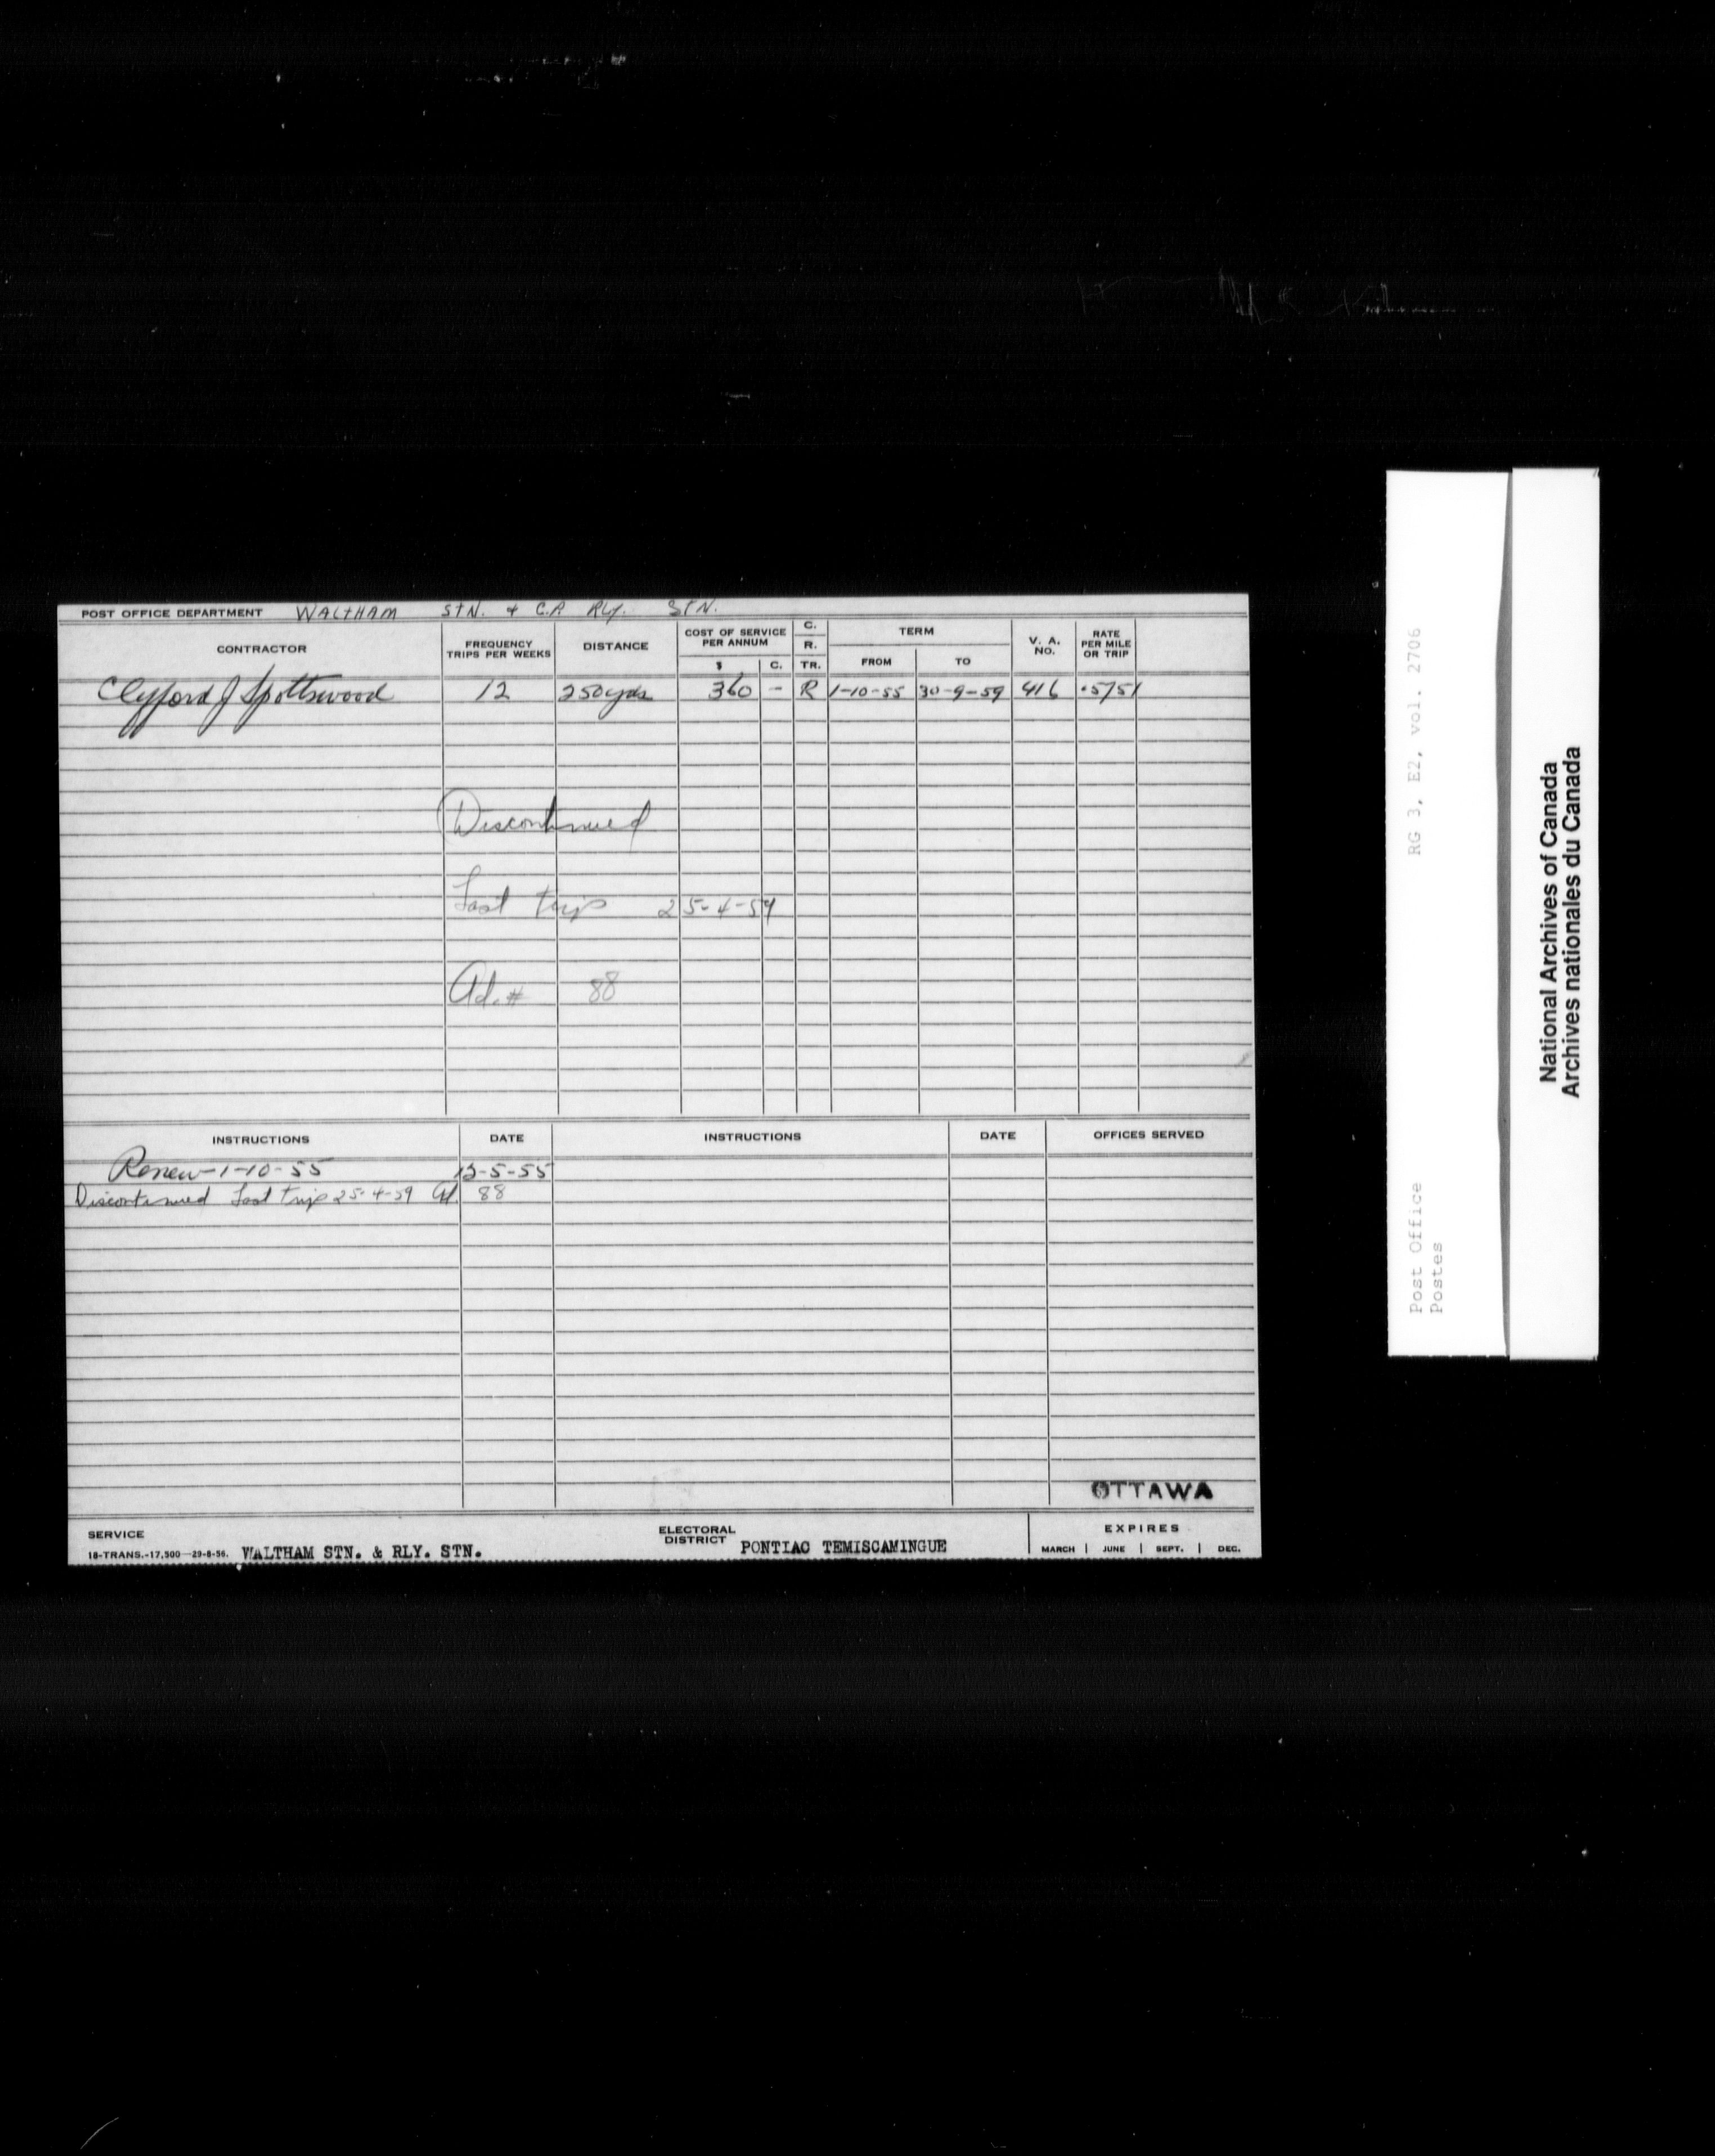 POST OFFICE DEPARTMENT WALTHAM STN. & C.P. RLY. STN.
CONTRACTOR FREQUENCY TRIPS PER WEEKS DISTANCE COST OF SERVICE PER ANNUM $ C. C. R. TR. TERM FROM TO V. A. NO. RATE PER MILE OR TRIP
Clyfford J Spottswood 12 250 yds 360 - R 1-10-55 30-9-59 416 .5751
Discontinued
Last trip 25-4-59
Ad. # 88
INSTRUCTIONS DATE INSTRUCTIONS DATE OFFICES SERVED
Renew-1-10-55 12-5-55
Discontinued Last trip 25-4-59 Ad. 88
OTTAWA
SERVICE ELECTORAL DISTRICT EXPIRES
18-TRANS.-17,500-29-6-56. WALTHAM STN. & RLY. STN. PONTIAC TEMISCAMINGUE MARCH JUNE SEPT. DEC.
RG 3, E2, vol. 2706
Post Office
Postes
National Archives of Canada
Archives nationales du Canada